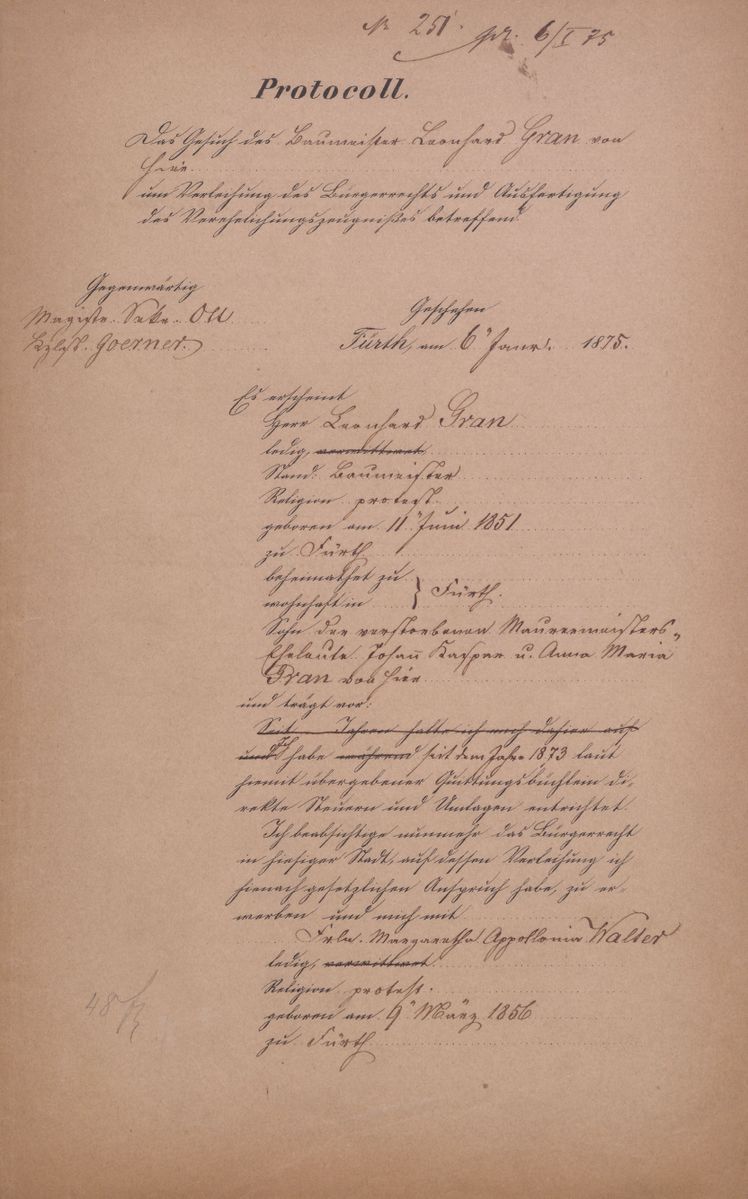 No 251. pr. 6/I 75
Protocoll.
Das Gesuch des Baumeister Leonhard Gran von
hier
um Verleihung des Bürgerrechts und Ausfertigung
des Verehelichungszeugnißes betreffend.
Gegenwärtig
Magistr. Sekr. Ott
Goerner.
Geschehen
Fürth, am 6. Janr. 1875.
Es erscheint
Herr Leonhard Gran
ledig, verwittwet,
Stand: Baumeister
Religion protest.
geboren am 11. Juni 1851
zu Fürth
beheimathet zu
wohnhaft in } Fürth.
Sohn der verstorbenen Maurermeisters-
Eheleute Johann Kaspar u. Anna Maria
Gran von hier
und trägt vor:
Seit Jahren halte ich mich dahier auf
und Ich habe während seit dem Jahre 1873 laut
hiemit übergebener Quittungsbüchlein di-
rekte Steuern und Umlagen entrichtet.
Ich beabsichtige nunmehr das Bürgerrecht
in hiesiger Stadt, auf dessen Verleihung ich
hienach gesetzlichen Anspruch habe, zu er-
werben und mich mit
Frln. Margaretha Appollonia Walter
ledig, verwittwet.
Religion protest.
geboren am 9. März 1856
zu Fürth
48